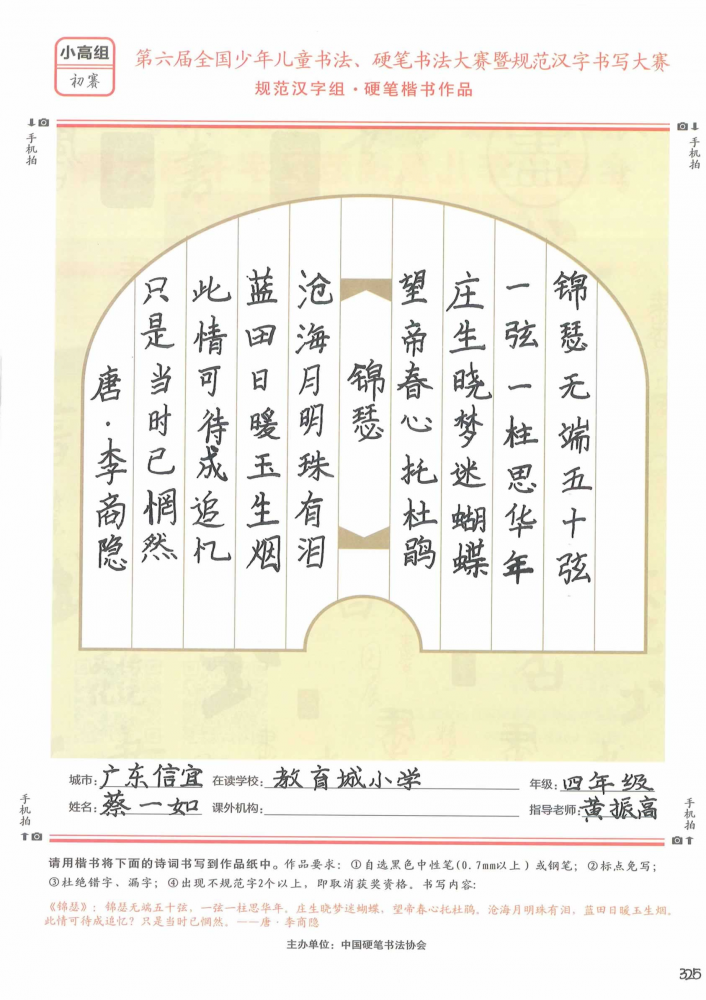 小高组
初赛
第六届全国少年儿童书法、硬笔书法大赛暨规范汉字书写大赛
规范汉字组·硬笔楷书作品
手机拍
手机拍
锦瑟无端五十弦
一弦一柱思华年
庄生晓梦迷蝴蝶
望帝春心托杜鹃
锦瑟
沧海月明珠有泪
蓝田日暖玉生烟
此情可待成追忆
只是当时已惘然
唐·李商隐
城市:广东信宜 在读学校:教育城小学 年级:四年级
姓名:蔡一如 课外机构: 指导老师:黄振高
手机拍
手机拍
请用楷书将下面的诗词书写到作品纸中。作品要求:①自选黑色中性笔(0.7mm以上)或钢笔;②标点免写;
③杜绝错字、漏字;④出现不规范字2个以上,即取消获奖资格。书写内容:
《锦瑟》:锦瑟无端五十弦,一弦一柱思华年。庄生晓梦迷蝴蝶,望帝春心托杜鹃。沧海月明珠有泪,蓝田日暖玉生烟。
此情可待成追忆?只是当时已惘然。——唐·李商隐
主办单位:中国硬笔书法协会
325